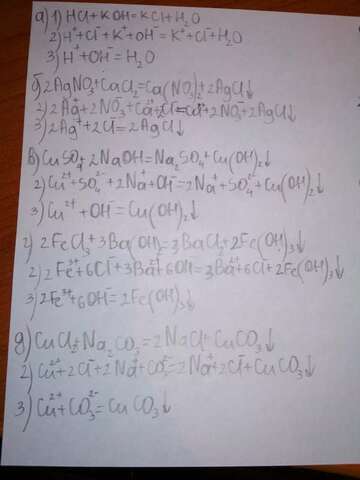 а) 1) HCl + KOH = KCl + H₂O
2) H⁺ + Cl⁻ + K⁺ + OH⁻ = K⁺ + Cl⁻ + H₂O
3) H⁺ + OH⁻ = H₂O
б) 2AgNO₃ + CaCl₂ = Ca(NO₃)₂ + 2AgCl↓
2) 2Ag⁺ + 2NO₃⁻ + Ca²⁺ + 2Cl⁻ = Ca²⁺ + 2NO₃⁻ + 2AgCl↓
3) 2Ag⁺ + 2Cl⁻ = 2AgCl↓
в) CuSO₄ + 2NaOH = Na₂SO₄ + Cu(OH)₂↓
2) Cu²⁺ + SO₄²⁻ + 2Na⁺ + OH⁻ = 2Na⁺ + SO₄²⁻ + Cu(OH)₂↓
3) Cu²⁺ + OH⁻ = Cu(OH)₂↓
г) 2FeCl₃ + 3Ba(OH)₂ = 3BaCl₂ + 2Fe(OH)₃↓
2) 2Fe³⁺ + 6Cl⁻ + 3Ba²⁺ + 6OH = 3Ba²⁺ + 6Cl⁻ + 2Fe(OH)₃↓
3) 2Fe³⁺ + 6OH⁻ = 2Fe(OH)₃↓
д) CuCl₂ + Na₂CO₃ = 2NaCl + CuCO₃↓
2) Cu²⁺ + 2Cl⁻ + 2Na⁺ + CO₃²⁻ = 2Na⁺ + 2Cl⁻ + CuCO₃↓
3) Cu²⁺ + CO₃²⁻ = CuCO₃↓